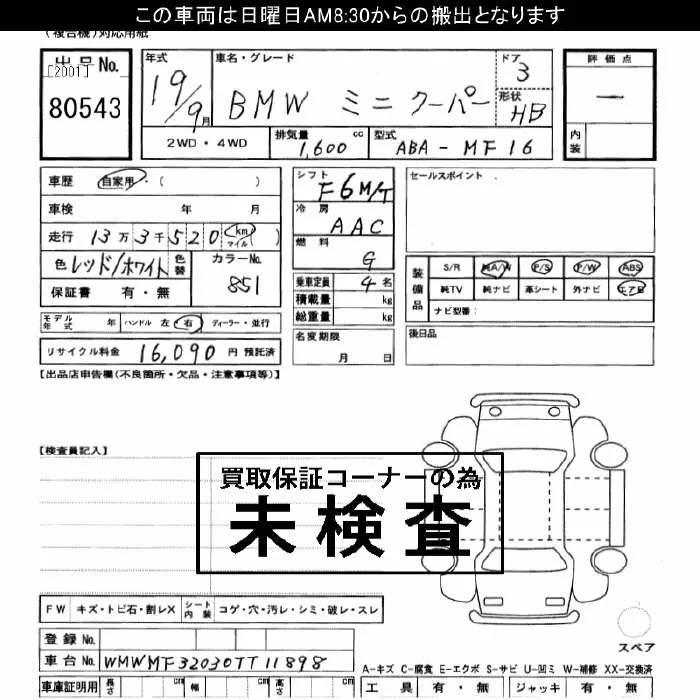 この車両は日曜日AM8:30からの搬出となります
(複合機)対応用紙
出品No.
[2001]
80543
年式
19/9月
車名・グレード
BMW ミニ クーパー
ドア
3
形状
HB
評価点
―
内装
2WD・4WD
排気量
1,600 cc
型式
ABA-MF16
車歴 自家用・( )
車検 年 月
走行 13万3千520 (km マイル)
色 レッド/ホワイト 色替
カラーNo.
851
保証書 有・無
シフト
F6M/T
冷房
AAC
燃料
G
乗車定員 4名
積載量 kg
総重量 kg
名変期限
月 日
セールスポイント
装備品
S/R 純A/W P/S P/W ABS
純TV 純ナビ 革シート 外ナビ エアB
ナビ型番:
後日品
モデル年式 年 ハンドル 左 右 ディーラー・並行
リサイクル料金 16,090 円 預託済
【出品店申告欄(不良箇所・欠品・注意事項等)】
【検査員記入】
買取保証コーナーの為
未検査
FW キズ・トビ石・割レX シート内装 コゲ・穴・汚レ・シミ・破レ・スレ
登録No.
車台No. WMWMF32030TT11898
スペア
A-キズ C-腐食 E-エクボ S-サビ U-凹ミ W-補修 XX-交換済
車庫証明用 長さ cm 幅 cm 高さ cm
工具 有・無 ジャッキ 有・無